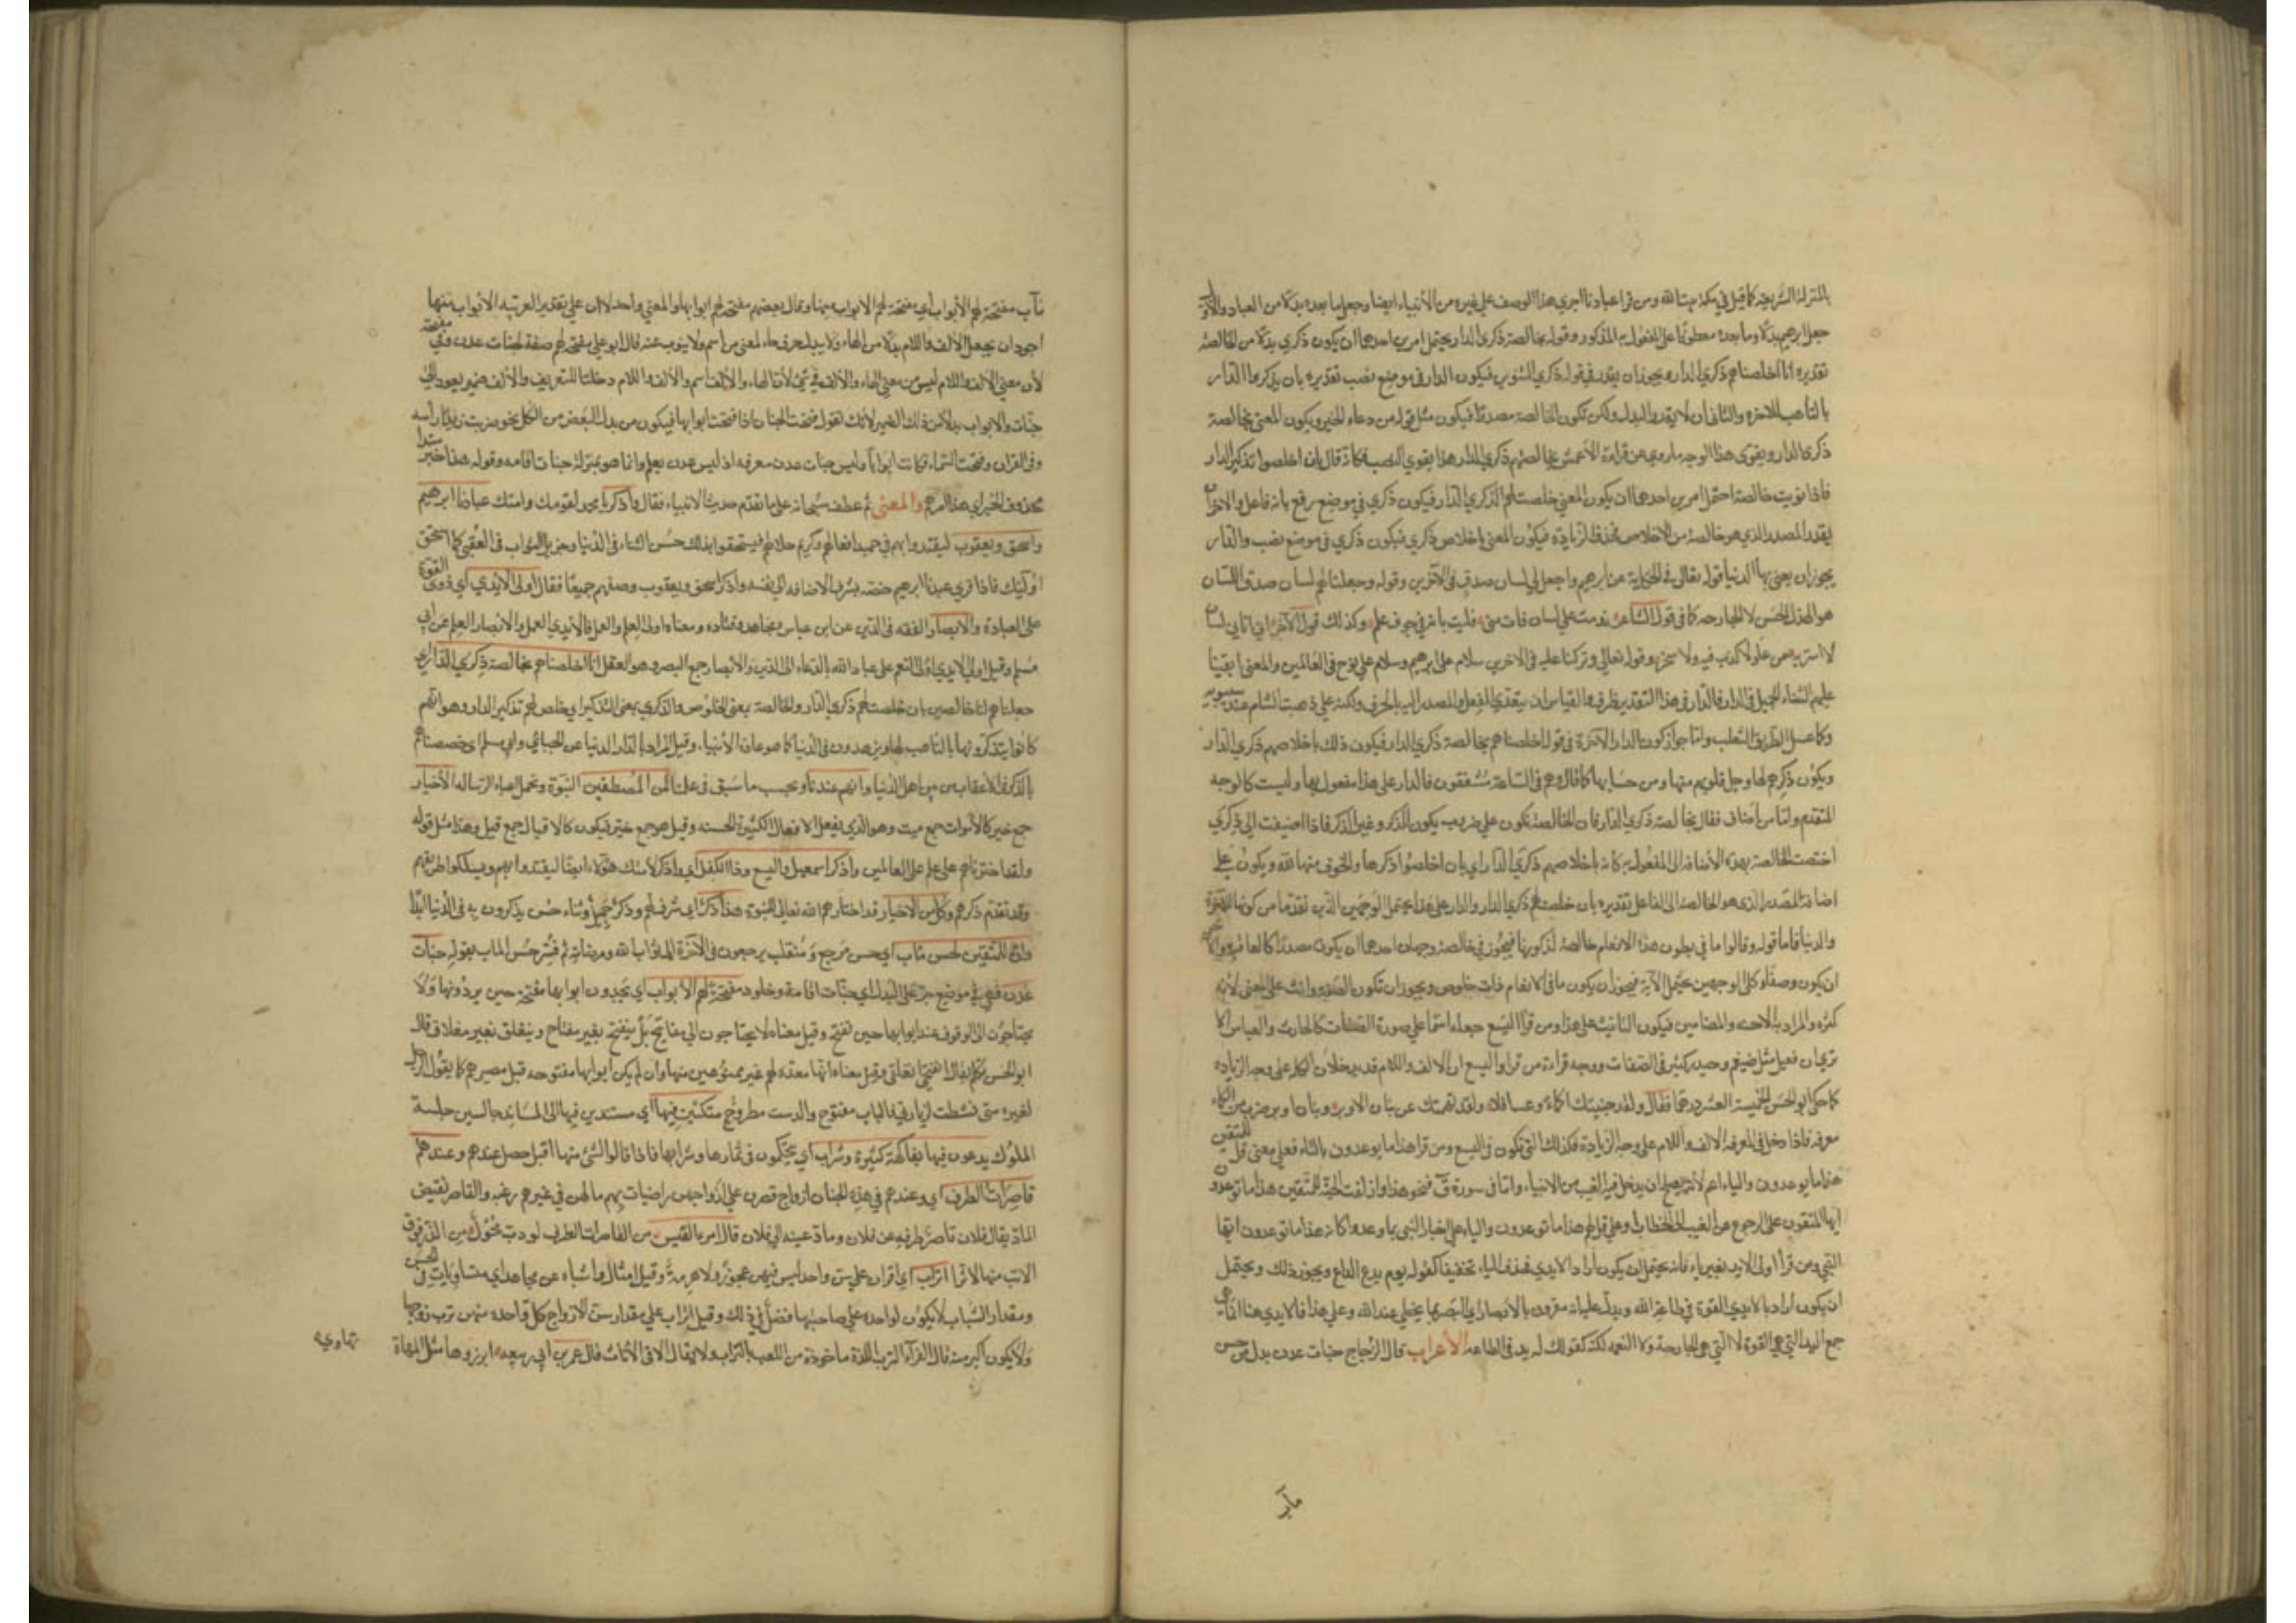 بالمنزلة الشريفة كما قيل في مكة بيت الله ومن قرا عبادنا اجرى هذا الوصف على غيره من الأنبياء ايضا وجعل ما بعده بدلا من العباد والاول
جعل ابرهيم بدلا وما بعده معطوفا على المفعول به المذكور وقوله بخالصة ذكرى الدار يحتمل امرين احدهما ان يكون ذكرى بدلا من الخالصة
تقديره انا اخلصناهم بذكرى الدار ويجوز ان يقدر في قوله ذكرى التنوين فيكون الدار في موضع نصب تقديره بان يذكروا الدار
بالتاهب للاخرة والثاني ان لا يقدر البدل ولكن تكون الخالصة مصدرا فيكون مثل قوله من دعاء الخير ويكون المعنى بخالصة
ذكرى الدار ويقوى هذا الوجه ما روي عن قراءة الأعمش بخالصتهم ذكرى الدار هذا يقوي النصب فكانه قال بان اخلصوا تذكير الدار
فاذا نونت خالصة احتمل امرين احدهما ان يكون المعنى خلصت لهم ذكرى الدار فيكون ذكرى في موضع رفع بانه فاعل والاخر ان
يقدر المصدر الذي هو خالصة من الاخلاص فحذف الزيادة فيكون المعنى باخلاص ذكرى فيكون ذكرى في موضع نصب والدار
يجوز ان يعنى بها الدنيا قوله تعالى في الحكاية عن ابرهيم واجعل لي لسان صدق في الآخرين وقوله وجعلنا لهم لسان صدق اللسان
هو القول الحسن لا الجارحة كما في قول الشاعر ندمت على لسان فات مني فليت بانه في جوف علم وكذلك قول الآخر اني اتاني لسان
لا اسر به من علو لا كذب فيه ولا سخر وقوله تعالى وتركنا عليه في الاخرين سلام على ابرهيم وسلام على نوح في العالمين والمعنى ابقينا
عليهم الثناء الجميل في الدار فالدار في هذا التقدير ظرف والقياس ان يتعدى الفعل والمصدر اليه بالحرف ولكنه على ذهبت الشام عند سيبويه
وكما عسل الطريق الثعلب واما جواز كون الدار الآخرة في قوله اخلصناهم بخالصة ذكرى الدار فيكون ذلك باخلاصهم ذكرى الدار
ويكون ذكرهم لها وجل قلوبهم منها ومن حسابها كما قال وهم في الساعة مشفقون فالدار على هذا مفعول بها وليست كالوجه
المتقدم واما من أضاف فقال بخالصة ذكرى الدار فان الخالصة تكون على ضروب يكون للذكر وغير الذكر فاذا اضيفت الى ذكرى
اختصت الخالصة بهذه الأضافة الى المفعول به كانه باخلاصهم ذكرى الدار اي بان اخلصوا ذكرها والخوف منها لله ويكون على
اضافة المصدر الذي هو الخالصة الى الفاعل تقديره بان خلصت لهم ذكرى الدار والدار على هذا يحتمل الوجهين الذين تقدما من كونها للآخرة
والدنيا فاما قوله وقالوا ما في بطون هذه الانعام خالصة لذكورنا فيجوز في خالصة وجهان احدهما ان يكون مصدرا كالعافية والآخر
ان يكون وصفا وكلا الوجهين يحتمل الآية فيجوز ان يكون ما في الانعام ذات خلوص ويجوز ان تكون الصفة وانث على المعنى لانه
كثرة والمراد به الاجنة والمضامين فيكون التانيث على هذا ومن قرأ اليسع جعله اسما على صورة الصفات كالحارث والعباس الا
ترى ان فعيل مثل ضيغم وحيدر كثير في الصفات ووجه قراءة من قرا واليسع ان الالف واللام قد يدخلان الكلمة على وجه الزيادة
كما حكى ابو الحسن الخمسة العشر درهما فقال ولقد جنيتك اكمؤا وعساقلا ولقد نهيتك عن بنات الاوبر وبنات اوبر ضرب من الكماة
معرفة فاذا دخل في المعرفة الالف واللام على وجه الزيادة فكذلك التي تكون في اليسع ومن قرا هذا ما يوعدون بالتاء فعلى معنى قل للمتقين
هذا ما يوعدون والياء اعم لأنه يصلح ان يدخل فيه الغيب من الانبياء واما في سورة قٓ فنحو هذا وازلفت الجنة للمتقين هذا ما توعدون
ايها المتقون على الرجوع من الغيب الى الخطاب وعلى قل لهم هذا ما توعدون والياء على اخبار النبي بما وعدوا كانه هذا ما توعدون ايها
النبي ومن قرأ اولى الايد بغير ياء فانه يحتمل ان يكون اراد الايدي فحذف الياء تخفيفا كقوله يوم يدع الداع ويجوز ذلك ويحتمل
ان يكون اراد بالايدي القوة في طاعة الله ويدل عليه انه مقرون بالأبصار اي البصر بما يحظي عند الله وعلى هذا فالايدي هنا انما هي
جمع اليد التي هي القوة لا التي هي الجارحة ولا النعمة لكنه كقولك له يد في الطاعة الأعراب قال الزجاج جنات عدن بدل من حسن
مآب
مآب مفتحة لهم الأبواب اي مفتحة لهم الابواب منها وقال بعضهم مفتحة لهم ابوابها والمعنى واحد الا ان على تقدير العربية الابواب منها
اجود ان يجعل الألف واللام بدلا من الهاء ولا يبدل حرف جاء لمعنى من اسم ولا ينوب عنه قال ابو علي مفتحة لهم صفة لجنات عدن وفي مفتحة
لأن معنى الالف واللام ليس من معنى الهاء والألف في شيء لأن الهاء والألف اسم والألف واللام دخلتا للتعريف والألف ضمير يعود الى
جنات والابواب بدل من ذلك الضمير لأنك تقول فتحت الجنان اذا فتحت ابوابها فيكون من بدل البعض من الكل نحو ضربت زيدا رأسه
وفي القران وفتحت السماء فكانت ابوابا وليس جنات عدن معرفة اذ ليس عدن بعلم وانما هو بمنزلة جنات اقامة وقوله هذا خبر مبتدا
محذوف الخبر اي هذا امرهم والمعنى ثم عطف سبحانه على ما تقدم حديث الانبياء فقال واذكر يا محمد لقومك وامتك عبادنا ابرهيم
واسحق ويعقوب ليقتدوا بهم في حميد افعالهم وكريم خلالهم فيستحقوا بذلك حسن الثناء في الدنيا وجزيل الثواب في العقبى كما استحق
اولئك فاذا قرئ عبدنا ابرهيم خصه بشرف الاضافة الى نفسه واذكر اسحق ويعقوب وصفهم جميعا فقال اولى الايدي اي ذوي القوة
على العبادة والابصار الفقه في الدين عن ابن عباس ومجاهد وقتادة ومعناه اولى العلم والعمل فالأيدي العمل والابصار العلم عن ابي
مسلم وقيل اولى الايدي اولى النعم على عباد الله بالدعاء الى الدين والأبصار جمع البصر وهو العقل انا اخلصناهم بخالصة ذكرى الدار اي
جعلناهم لنا خالصين بان خلصت لهم ذكرى الدار والخالصة بمعنى الخلوص والذكرى بمعنى التذكير اي خلص لهم تذكير الدار وهو انهم
كانوا يتذكرونها بالتاهب لها ويزهدون في الدنيا كما هو عادة الأنبياء وقيل المراد بالدار الدنيا عن الجبائي وابي مسلم اي خصصناهم
بالذكر في الأعقاب من بين اهل الدنيا وانهم عندنا وبحسب ما سبق في علمنا لمن المصطفين النبوة وتحمل اعباء الرسالة الأخيار
جمع خير كالأموات جمع ميت وهو الذي يفعل الافعال الكثيرة الحسنة وقيل هو جمع خير فيكون كالاقيال جمع قيل وهذا مثل قوله
ولقد اخترناهم على علم على العالمين واذكر اسمعيل واليسع وذا الكفل اي واذكر لأمتك هؤلاء ايضا ليقتدوا بهم ويسلكوا طريقهم
وقد تقدم ذكرهم وكل من الاخيار قد اختارهم الله تعالى للنبوة هذا ذكر اي شرف لهم وذكر جميل وثناء حسن يذكرون به في الدنيا ابدا
وان للمتقين لحسن مآب اي حسن مرجع ومنقلب يرجعون في الآخرة الى ثواب الله ومرضاته ثم فسر حسن الماب بقوله جنات
عدن فهي في موضع جر على البدل اي جنات اقامة وخلود مفتحة لهم الابواب اي يجدون ابوابها مفتحة حين يردونها ولا
يحتاجون الى الوقوف عند ابوابها حين تفتح وقيل معناه لا يحتاجون الى مفاتيح بل تنفتح بغير مفتاح وينغلق بغير مغلاق قال
ابو الحسن تكلم يقال انفتحي انغلقي وقيل معناه انها معدة لهم غير ممنوعين منها وان لم يكن ابوابها مفتوحة قبل مصيرهم كما يقول الرجل
لغيره متى نشطت لزيارتي فالباب مفتوح والدست مطروح متكئين فيها اي مستندين فيها الى المساند جالسين جلسة
الملوك يدعون فيها بفاكهة كثيرة وشراب اي يتحكمون في ثمارها وشرابها فاذا قالوا لشئ منها اقبل حصل عندهم وعندهم
قاصرات الطرف اي وعندهم في هذه الجنان ازواج قصرن على ازواجهن راضيات بهم ما لهن في غيرهم رغبة والقاصر نقيض
الماد يقال فلان قاصر طرفه عن فلان وماد عينه الى فلان قال امرء القيس من القاصرات الطرف لو دب محول من الذر فوق
الاتب منها لاثرا اتراب اي اقران على سن واحد ليس فيهن عجوز ولا هرمة وقيل امثال واشباه عن مجاهد اي متساويات في الحسن
ومقدار الشباب لا يكون لواحدة على صاحبتها فضل في ذلك وقيل اتراب على مقدار سن الازواج كل واحدة منهن ترب زوجها
ولا يكون اكبر منه قال الفراء الترب اللدة ماخوذة من اللعب بالتراب ولا يقال الا في الأناث قال عمر بن ابي ربيعة ابرزوها مثل المهاة
تهادى